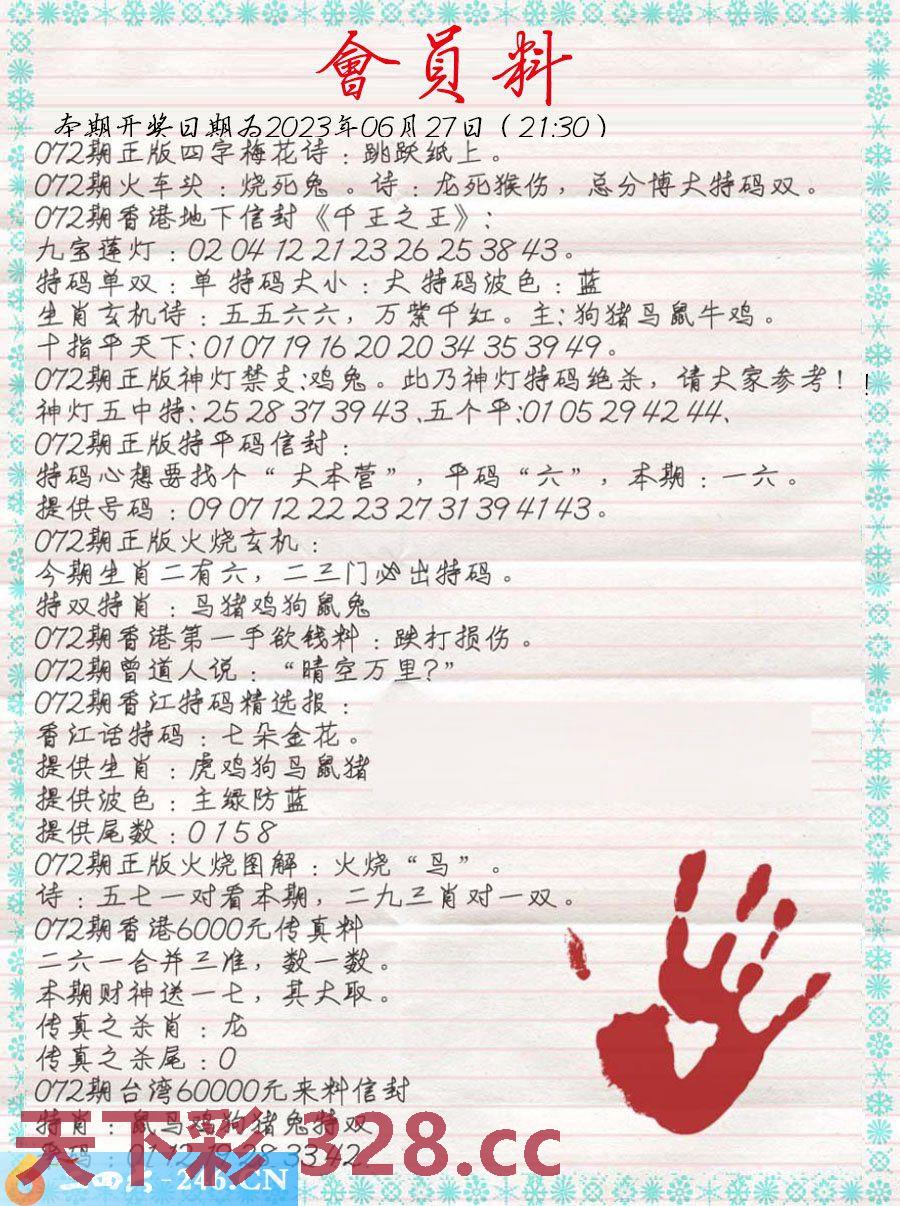 會員料
本期开奖日期为2023年06月27日（21:30）
072期正版四字梅花诗：跳跃纸上。
072期火车头：烧死兔。诗：龙死猴伤，总分博大特码双。
072期香港地下信封《千王之王》：
九宝莲灯：02 04 12 21 23 26 25 38 43。
特码单双：单 特码大小：大 特码波色：蓝
生肖玄机诗：五五六六，万紫千红。主：狗猪马鼠牛鸡。
十指平天下：01 07 19 16 20 20 34 35 39 49。
072期正版神灯禁支：鸡兔。此乃神灯特码绝杀，请大家参考！！
神灯五中特：25 28 37 39 43、五个平：01 05 29 42 44、
072期正版特平码信封：
特码心想要找个“大本营”，平码“六”，本期：一六。
提供号码：09 07 12 22 23 27 31 39 41 43。
072期正版火烧玄机：
今期生肖二有六，二三门必出特码。
特双特肖：马猪鸡狗鼠兔
072期香港第一手欲钱料：跌打损伤。
072期曾道人说：“晴空万里?”
072期香江特码精选报：
香江话特码：七朵金花。
提供生肖：虎鸡狗马鼠猪
提供波色：主绿防蓝
提供尾数：0 1 5 8
072期正版火烧图解：火烧“鸟”。
诗：五七一对看本期，二九三肖对一双。
072期香港6000元传真料
二六一合并三准，数一数。
本期财神送一七，其大取。
传真之杀肖：龙
传真之杀尾：0
072期台湾60000元来料信封
特肖：鼠马鸡狗猪兔特双
天下彩 328.cc
-246.CN